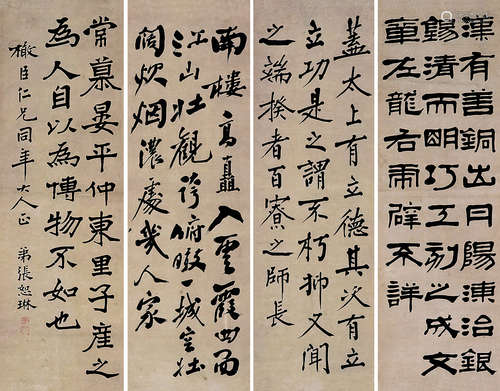 漢有善銅出丹陽湅治銀
錫清而明巧工刻之成文
章左龍右虎辟不詳
蓋太上有立德其次有立
立功是之謂不朽抑又聞
之端揆者百寮之師長
南樓高矗入雲霞四面
江山壯觀誇俯瞰一城空壯
闊炊烟濃處幾人家
常慕晏平仲東里子產之
為人自以為博物不如也
檄臣仁兄同年大人正
弟張恕琳